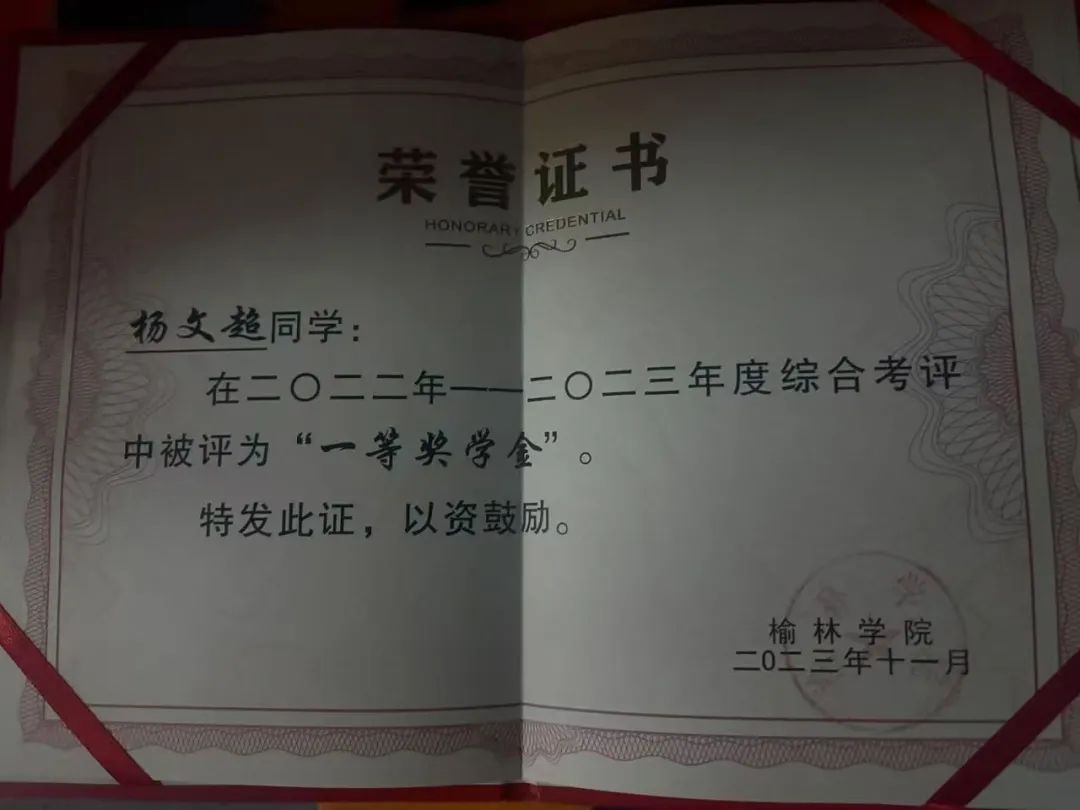 荣誉证书
HONORARY CREDENTIAL
杨文超同学：
在二〇二二年——二〇二三年度综合考评
中被评为“一等奖学金”。
特发此证，以资鼓励。
榆林学院
二0二三年十一月